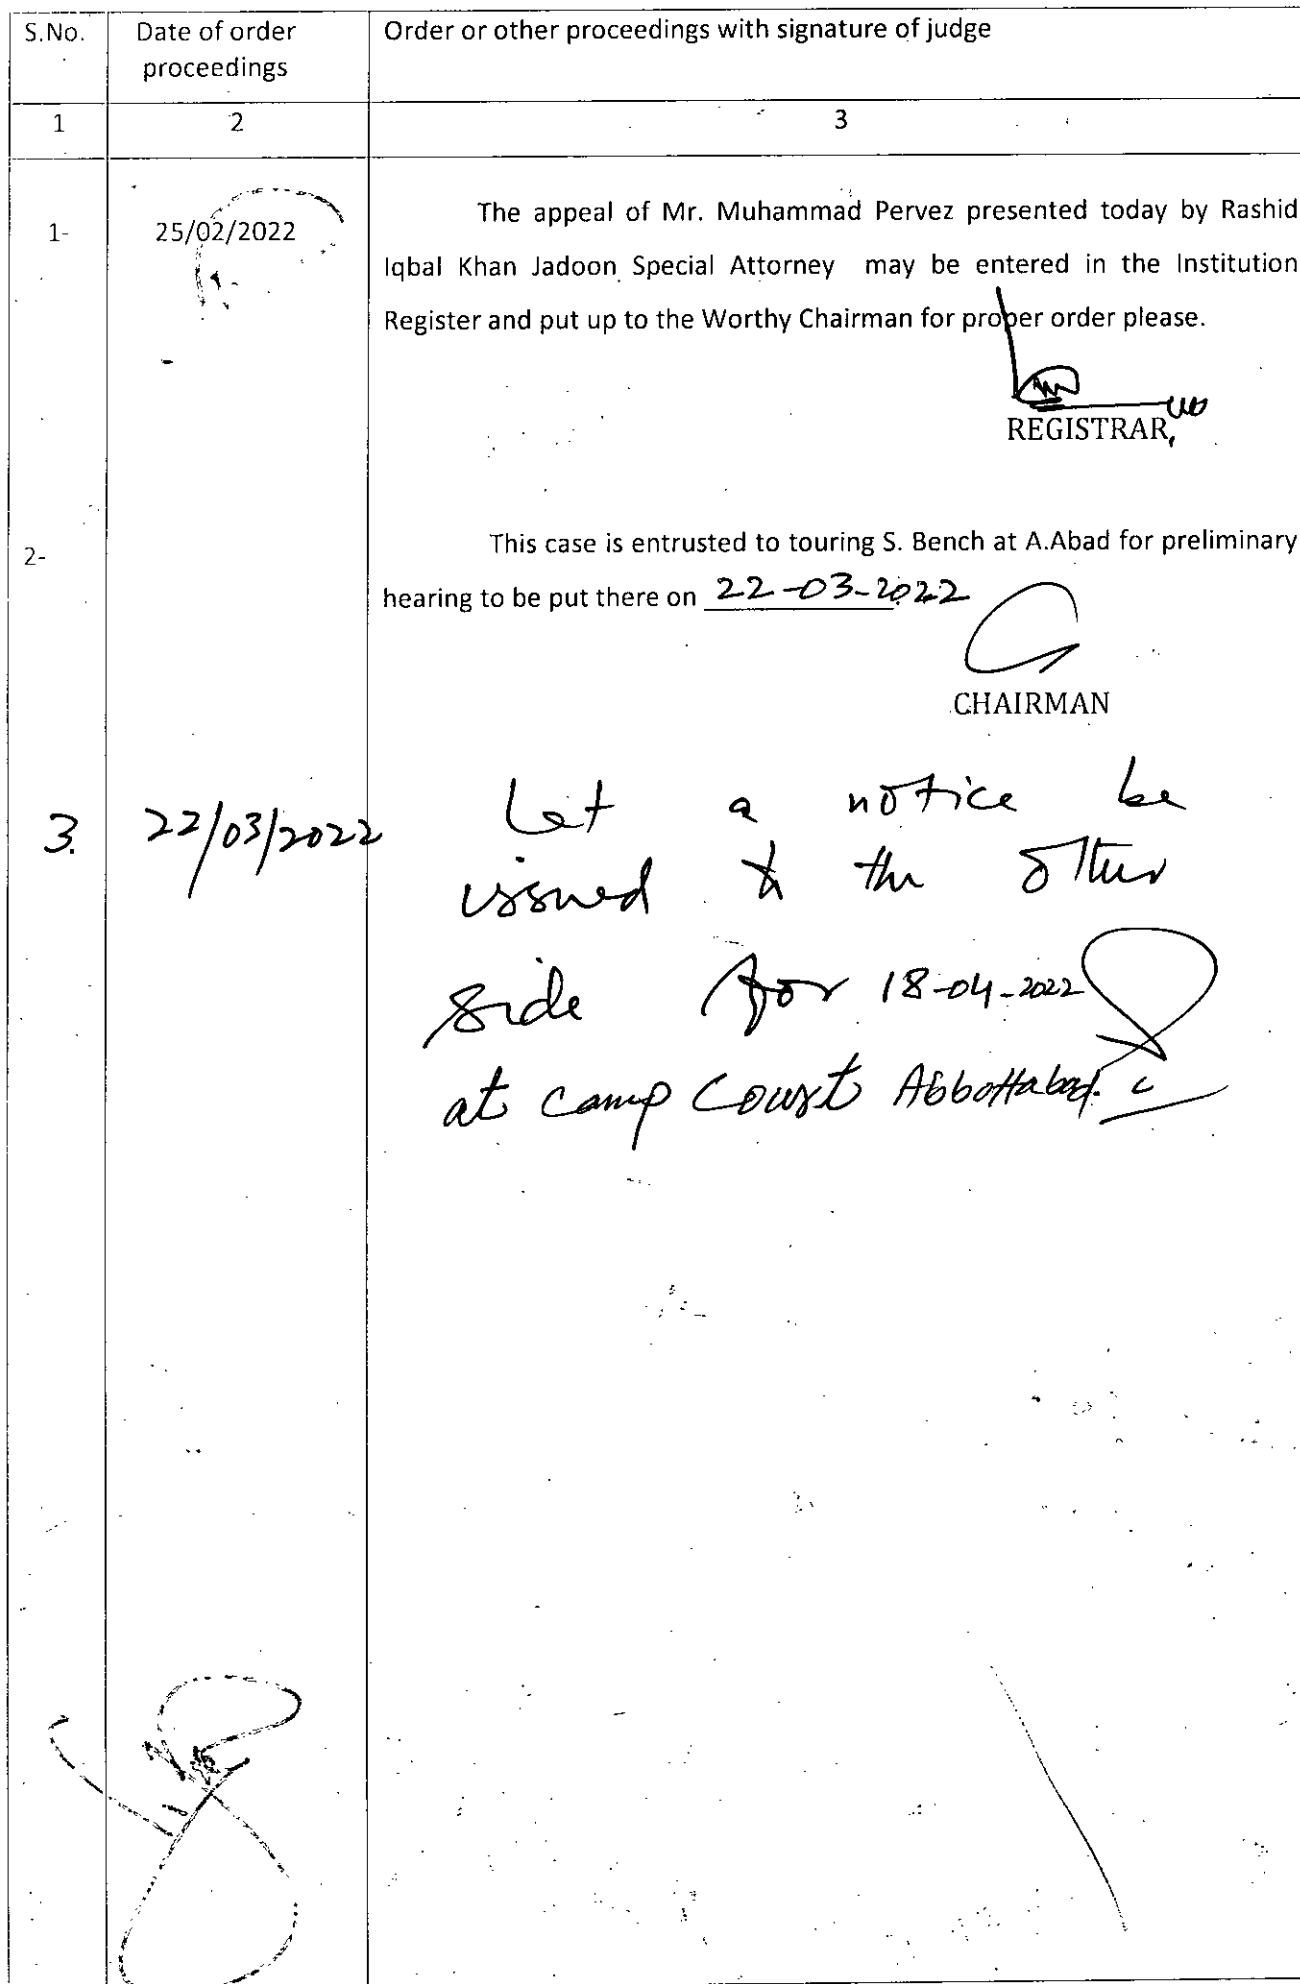 S.No. Date of order Order or other proceedings with signature of judge
proceedings
1 2 3
1- 25/02/2022 The appeal of Mr. Muhammad Pervez presented today by Rashid
Iqbal Khan Jadoon Special Attorney may be entered in the Institution
Register and put up to the Worthy Chairman for proper order please.
REGISTRAR,
2- This case is entrusted to touring S. Bench at A.Abad for preliminary
hearing to be put there on 22-03-2022
CHAIRMAN
3. 22/03/2022 Let a notice be
issued to the other
side for 18-04-2022
at camp Court Abbottabad.